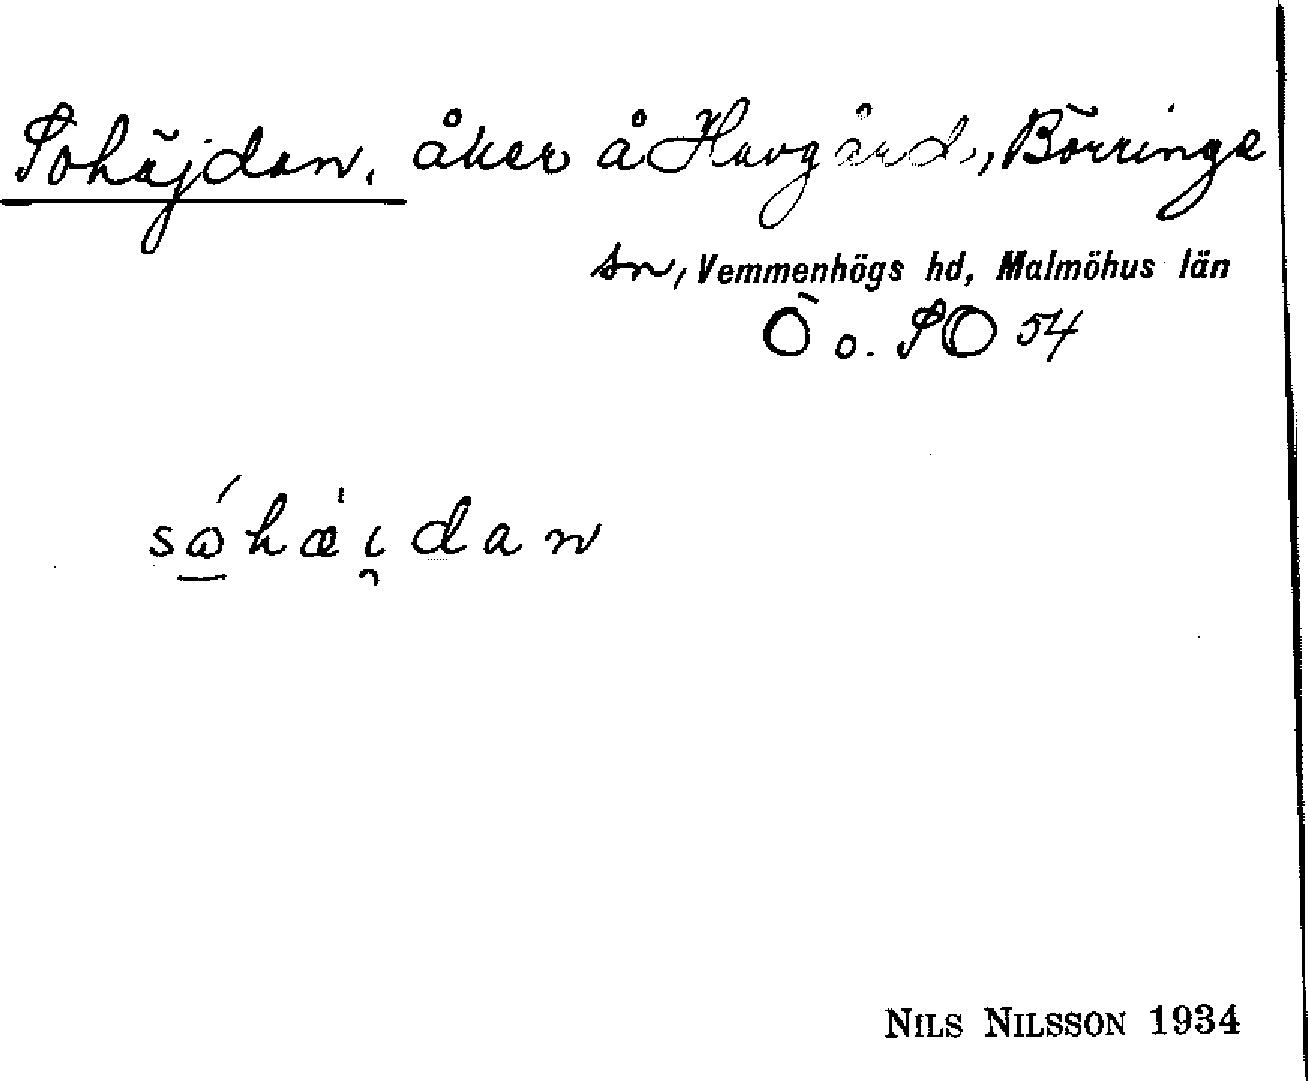 Sohäjdan, åker å Havgård, Börringe
sn, Vemmenhögs hd, Malmöhus län
Ö o. SO 54
sώhæ'i̯dan
NILS NILSSON 1934